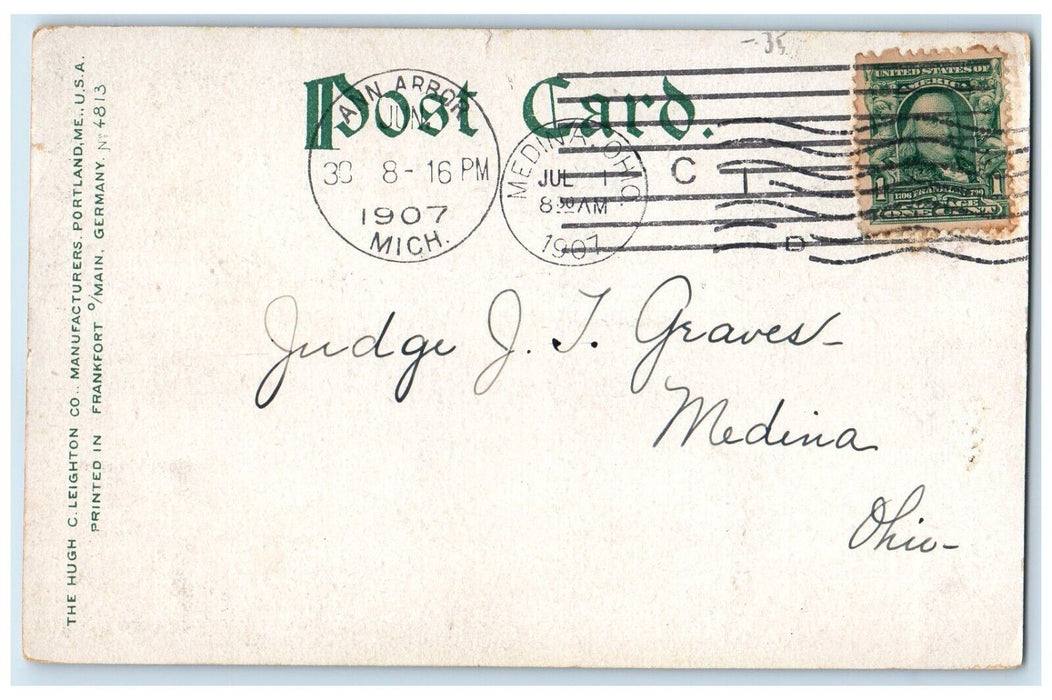 -.35
Post Card.
ANN ARBOR
JUN
30 8-16 PM
1907
MICH.
MEDINA, OHIO
JUL 1
8 30 AM
1907
C
D
UNITED STATES OF
AMERICA
1 1
POSTAGE
ONE CENT
Judge J. T. Graves-
Medina
Ohio-
THE HUGH C. LEIGHTON CO., MANUFACTURERS, PORTLAND, ME., U.S.A.
PRINTED IN FRANKFORT O/MAIN, GERMANY. No 4813